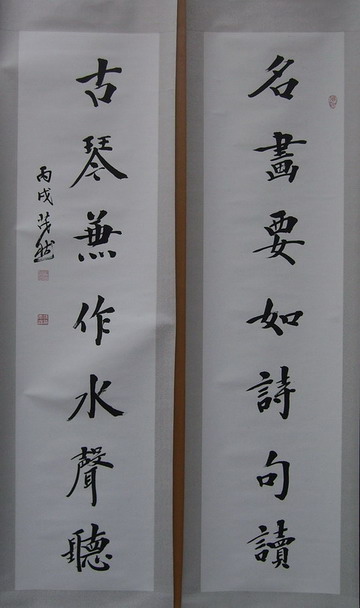 名畫要如詩句讀
古琴兼作水聲聽
丙戌